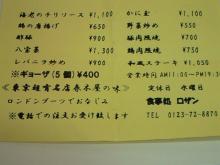 海老のチリソース ¥1,100
鶏の唐揚げ ¥650
酢豚 ¥900
八宝菜 ¥1,300
レバニラ炒め ¥900
※ギョーザ(5個)¥400
《東京超有名店春木屋の味》
ロンドンブーツでおなじみ
※電話での注文お受け致します
かに玉 ¥1,100
野菜炒め ¥550
豚肉照焼 ¥700
鶏肉照焼 ¥750
和風ステーキ ¥1,050
営業時間 AM11:00〜PM19:3
定休日 水曜日
食事処 ロザン
TEL 0123-72-8870